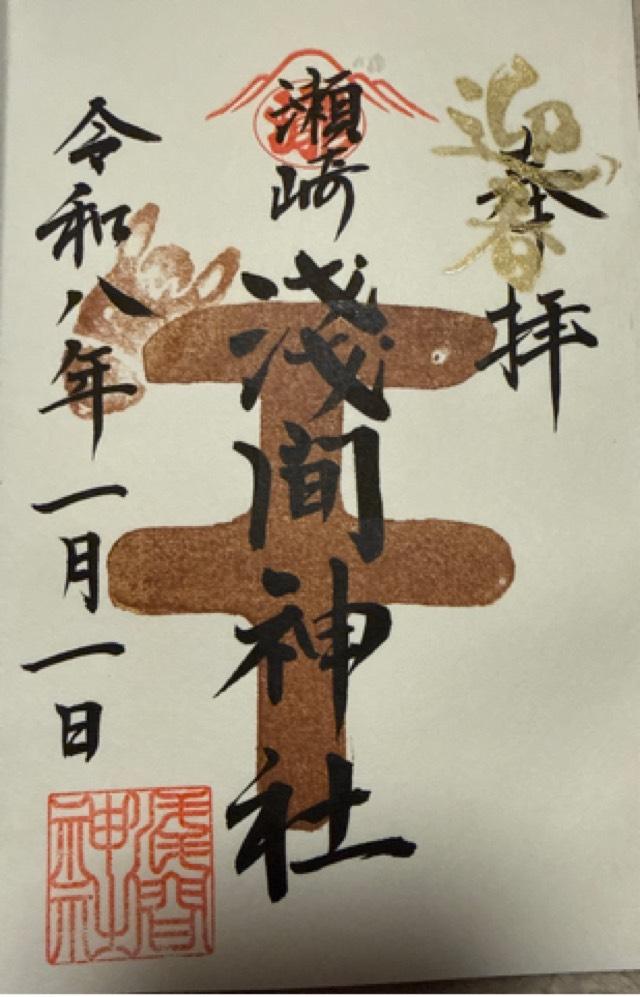 迎春
奉拝
瀬崎
浅間神社
令和八年一月一日
浅間
神社